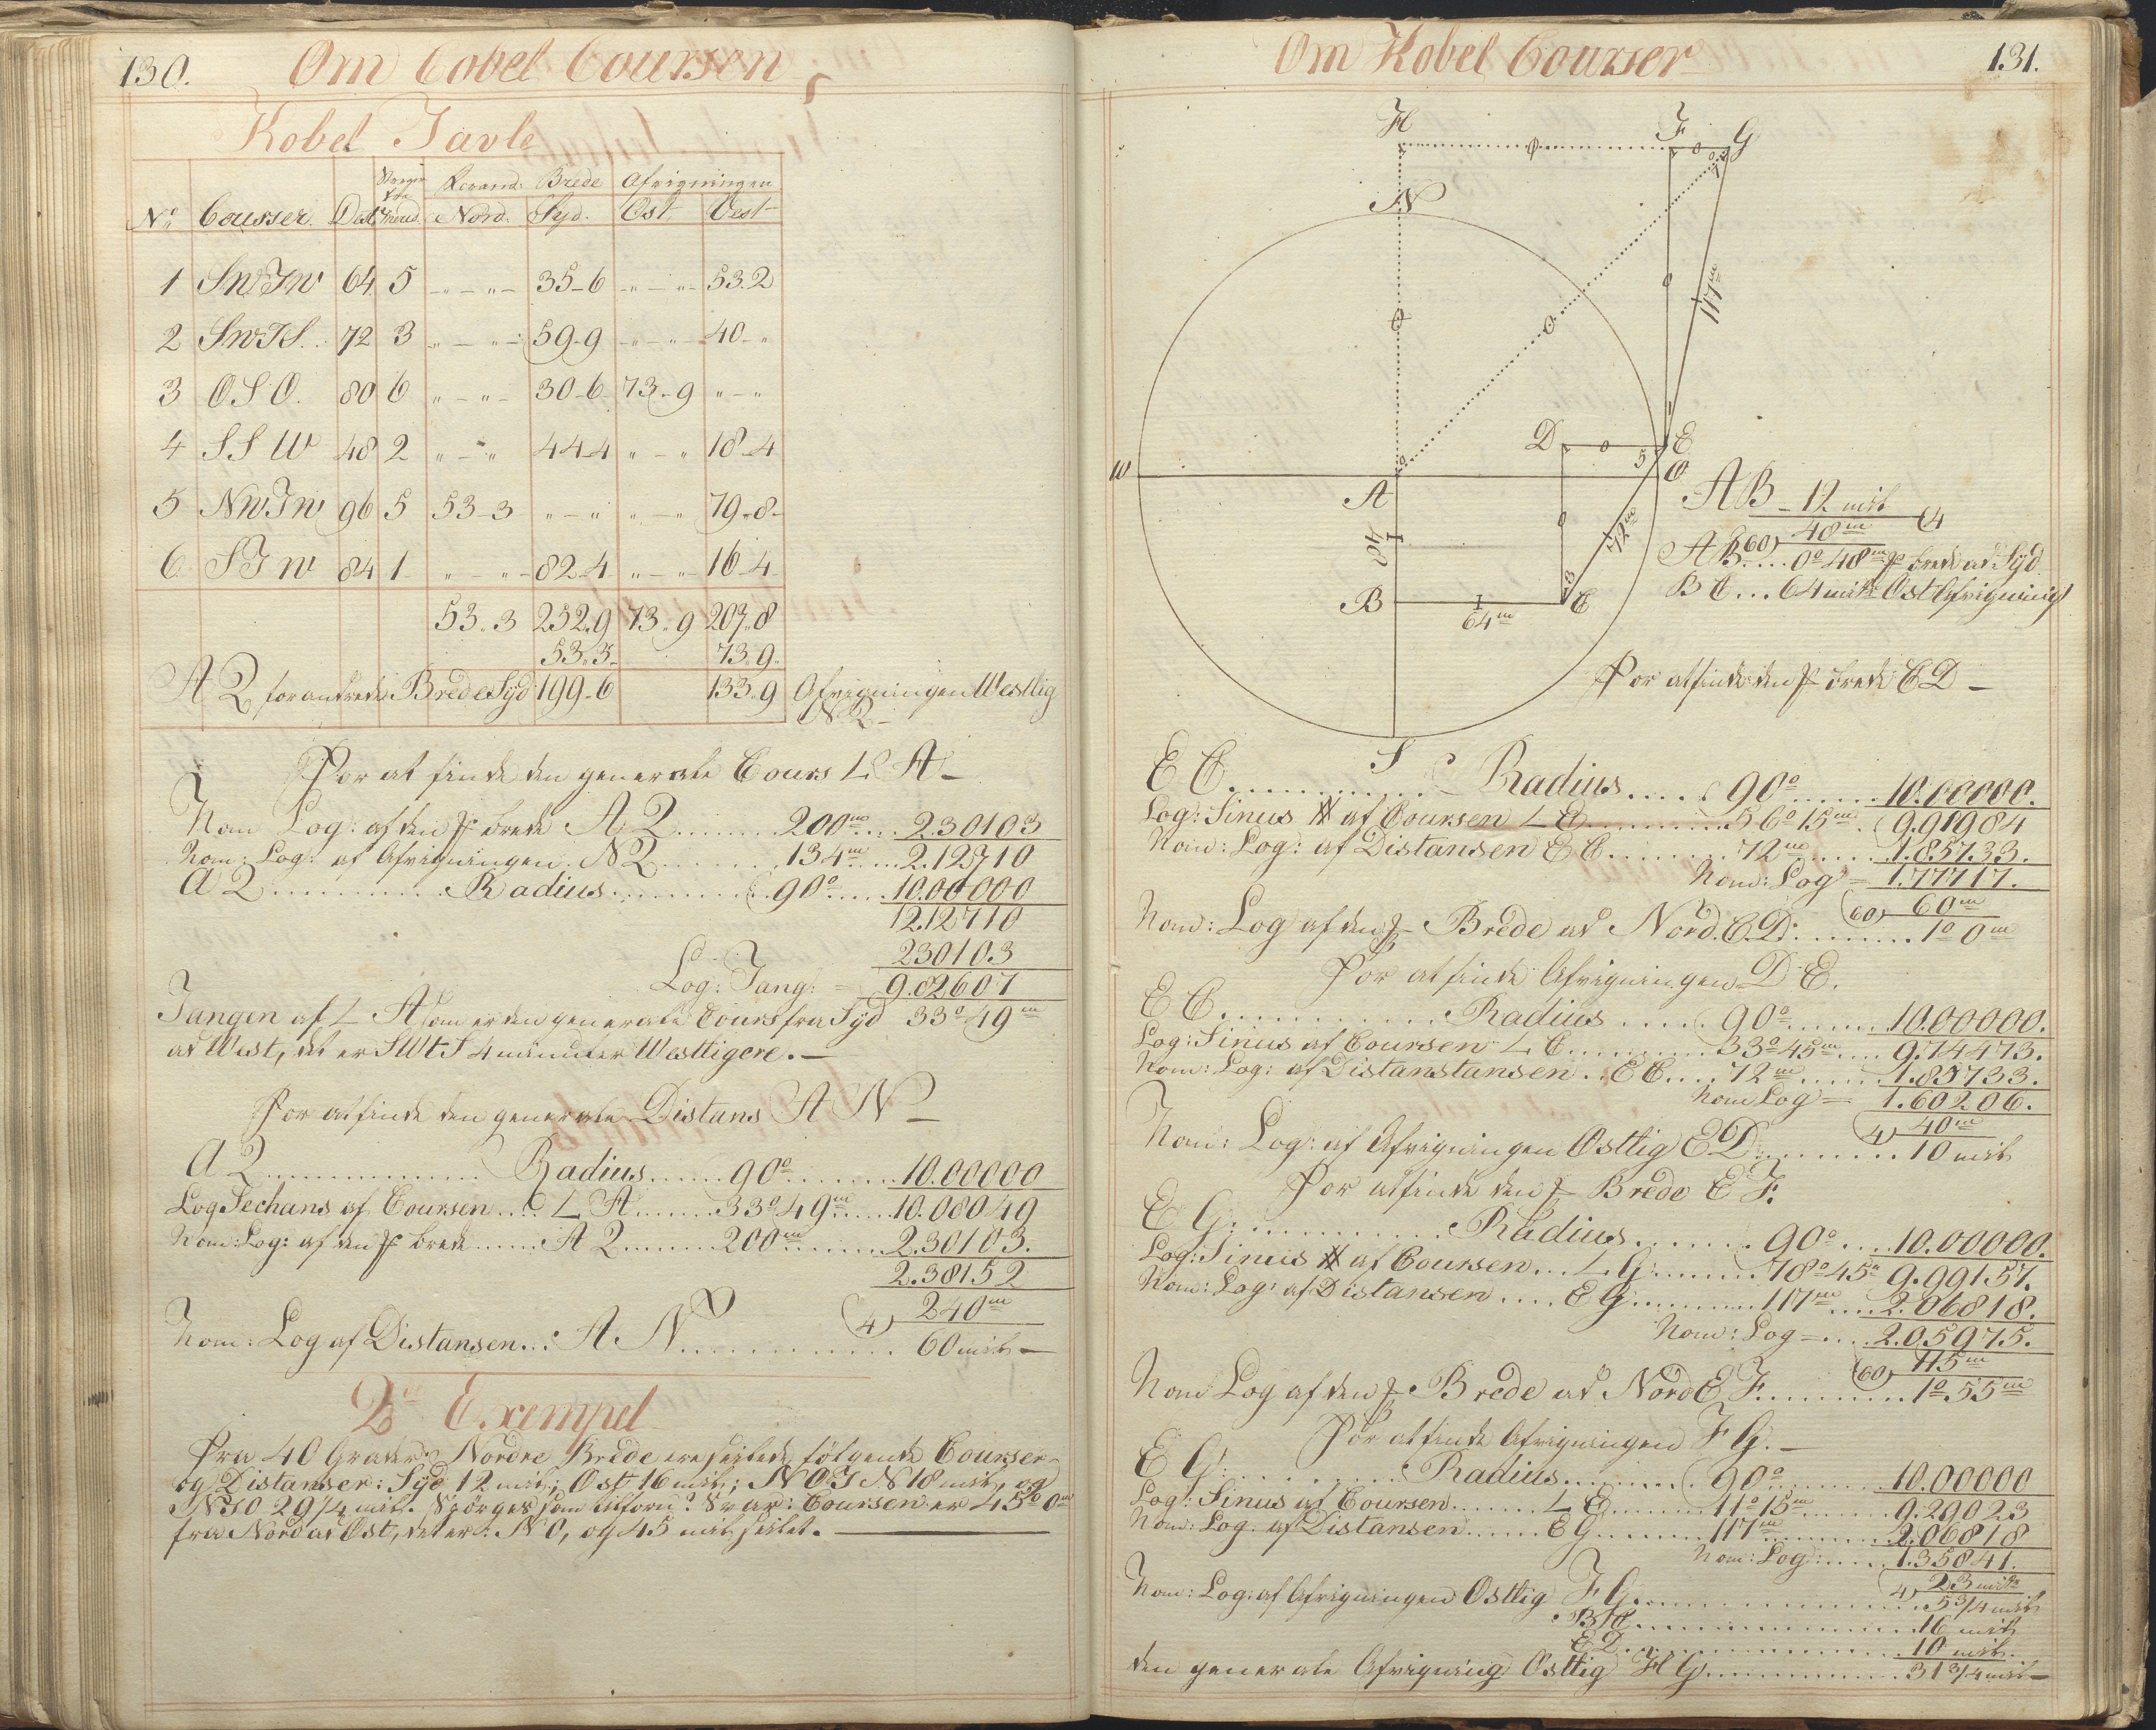 130.
Om Cobel Coursen
Kobel Tavle
Forand: Brede Afvigningen
No Courser. Dist. Nord. Syd. Ost Vest
1 SWTW 64 5 35-6 53.2
2 SWTS. 72 3 59-9 40-"
3 OSO. 80 6 30-6 73-9
4 SSW 48 2 44-4 18-4
5 NWTW 96 5 53-3 79-8
6 STW 84 1 82-4 16-4
53.3 252.9 73.9 207.8
53.3 73.9.
A2 forandrede Brede Syd 199-6 133.9 Afvigningen Westlig
N2-
For at finde den generale Cours L A-
Nom Log: af den brede A2 200m 2.30103
Nom: Log: af Afvigningen. N2 134m 2.12710
A2 Radius 90° 10.00000
12.12710
2.30103
Log: Tang: = 9.82607
Tangen af L A som er den generale Cours fra Syd 33° 49m
ad West, det er SWtS 4 minuter Westligere.-
For at finde den generale Distans AN-
A2 Radius 90° 10.00000
Log Sechans af Coursen L A 33° 49m 10.08049
Nom: Log: af den brede A2 200m 2.30103.
2.38152
4) 240m
Nom: Log af Distansen..: A. N 60 mil-
2de Exempel
Fra 40 Grader Nordre Brede ere seilede følgende Courser
og Distanser: Syd 12 mil; Ost 16 mil; NOTN 18 mil, og
NTO 29 1/4 mil. Spörges som tilforn? Svar: Coursen er 45° 0m
fra Nord ad Ost, det er: NO, og 45 mil seilet.
Om Kobel Courser
131.
H F G
N
117m
D E
5
W O
A
48
72m
3
B C
64m
S
AB - 12 mil
4
60) 48m
AB.... 0° 48m brede ad Syd
BC... 64 minr: Ost Afvigning
For at finde den brede CD-
EC Radius 90° 10.00000.
Log: Sinus af Coursen L E 56° 15m 9.91984
Nom: Log: af Distansen EC 72m 1.85733.
Nom: Log = 1.77717.
60) 60m
Nom: Log af den Brede ad Nord. C.D: 1° 0m
For at finde Afvigningen D E.
EC Radius 90° 10.00000.
Log: Sinus af Coursen L C 33° 45m 9.74473.
Nom: Log: af Distanstansen EC 72m 1.85733.
Nom Log = 1.60206.
4) 40m
Nom: Log: af Afvigningen Ostlig ED 10 mil
For at finde den Brede E F.
EG: Radius 90° 10.00000.
Log: Sinus af Coursen L G 78° 45m 9.99157.
Nom: Log: af Distansen EG 117m 2.06818.
Nom: Log = 2.05975.
60) 115m
Nom Log af den Brede ad Nord E F 1° 55m
For at finde Afvigningen F G.-
EG: Radius 90° 10.00000
Log: Sinus af Coursen L E 11° 15m 9.29023
Nom: Log. af Distansen EG 117m 2.06818
Nom: Log: 1.35841.
4) 23 mil
Nom: Log: af Afvigningen Ostlig F G 5 3/4 mil
BC 16 mil
ED 10 mil.
den generale Afvigning Ostlig H G 31 3/4 mil-